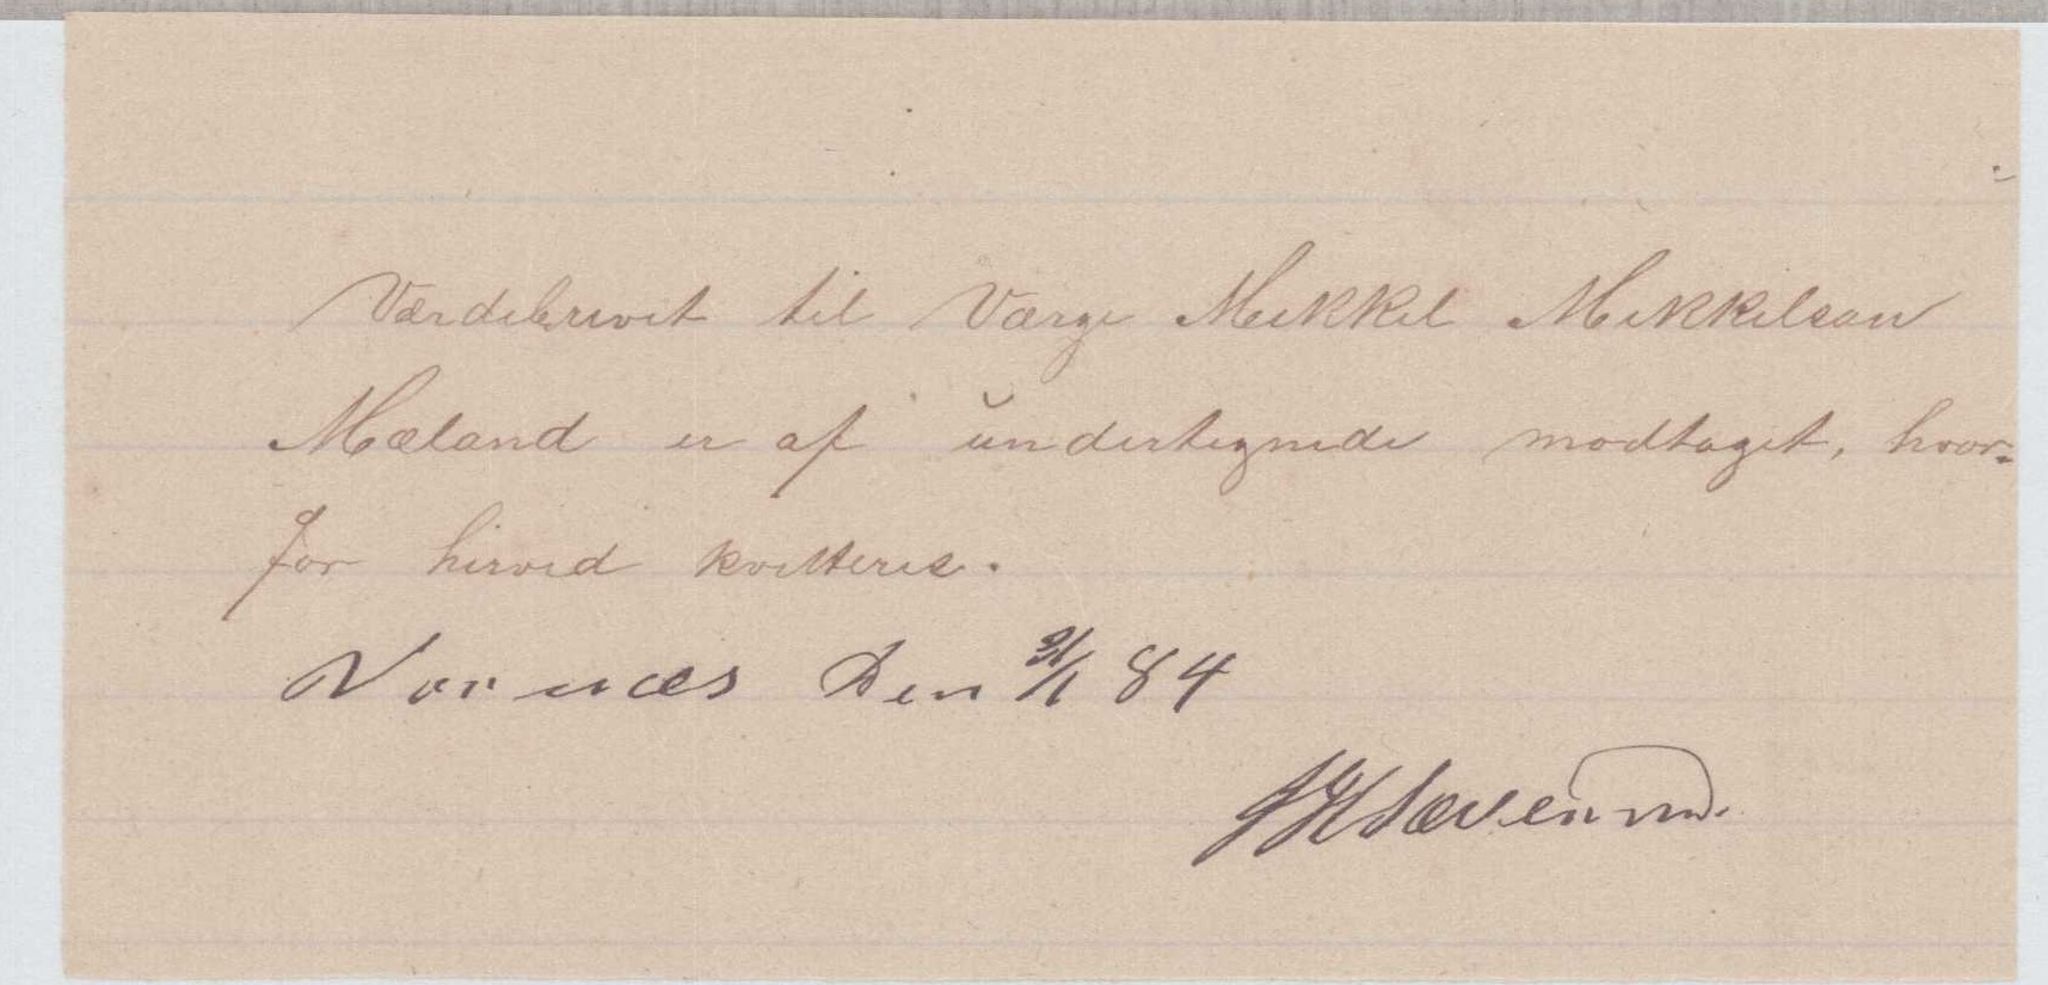 Værdebrevet til Værge Mekkel Mekkelsen
Mæland er af undertegnede modtaget, hvor-
for herved kvitteres.
Vornæs Den 31/1 84